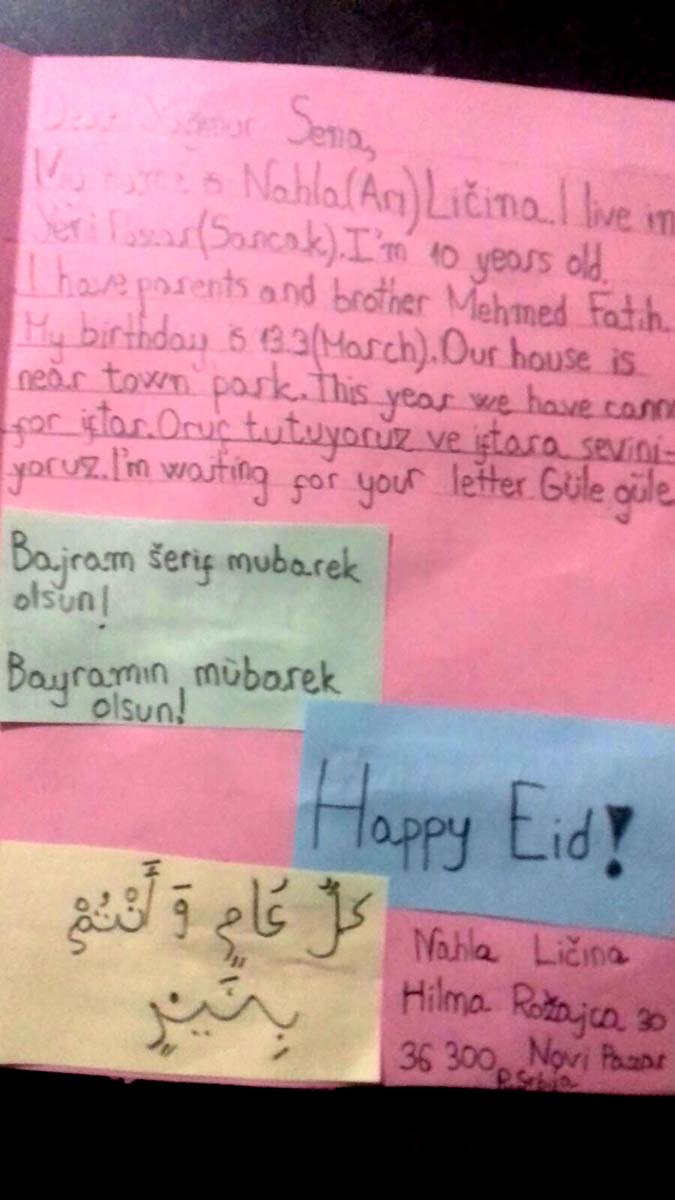 Dear Yağmur Sena,
My name is Nahla(Arı)Ličina. I live in
Yeni Pazar(Sancak). I'm 10 years old.
I have parents and brother Mehmed Fatih.
My birthday is 13.3(March). Our house is
near town park. This year we have
for iftar. Oruç tutuyoruz ve iftara sevini-
yoruz. I'm waiting for your letter. Güle güle
Bajram šerif mubarek
olsun!
Bayramın mübarek
olsun!
Happy Eid!
كلُّ عَامٍ وَ أَنْتُمْ
بِخَيْرٍ
Nahla Ličina
Hilma Rožajca 30
36 300 Novi Pazar
R. Srbija